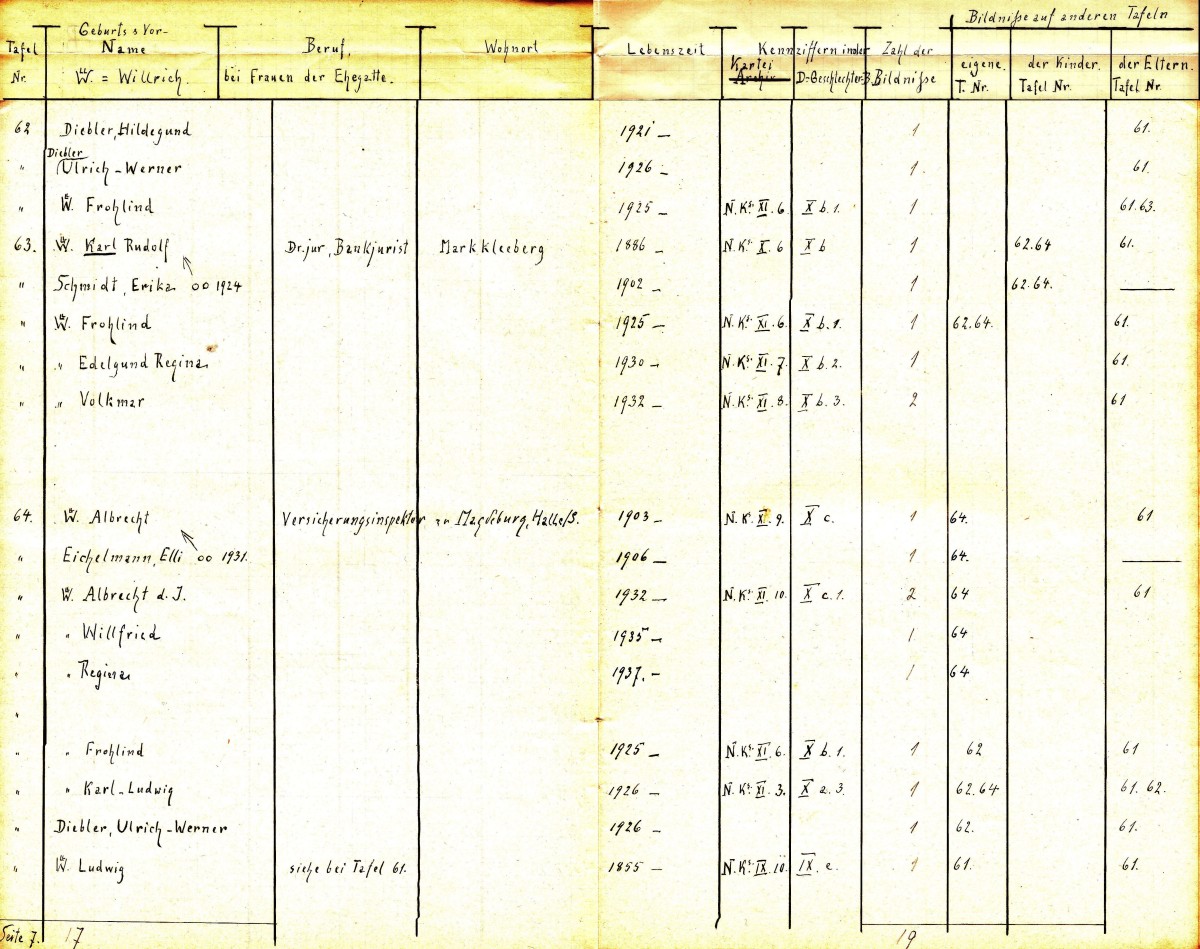 Bildniſſe auf anderen Tafeln
Tafel Geburts & Vor- Beruf, Wohnort Lebenszeit Kennziffern in der Zahl der eigene. der Kinder. der Eltern.
Nr. Name bei Frauen der Ehegatte. Kartei D=Geschlechter-B. Bildniſſe T. Nr. Tafel Nr. Tafel Nr.
W. = Willrich. Archiv
62 Diebler, Hildegund 1921 – 1 61.
" Diebler Ulrich-Werner 1926 – 1. 61.
" W. Frohlind 1925 – N.Ks. XI. 6. X b.1. 1 61.63.
63. W. Karl Rudolf Dr. jur, Bankjurist Markkleeberg 1886 – N.Ks. X. 6 X b 1 62.64 61.
" Schmidt, Erika oo 1924 1902 – 1 62.64. ———
" W. Frohlind 1925 – N.Ks. XI. 6. X b.1. 1 62.64. 61.
" " Edelgund Regina 1930 – N.Ks. XI. 7. X b.2. 1 61.
" " Volkmar 1932 – N.Ks. XI. 8. X b.3. 2 61
64. W. Albrecht Versicherungsinspektor zu Magdeburg, Halle/S. 1903 – N.Ks. X. 9. X c. 1 64. 61
" Eichelmann, Elli oo 1931. 1906 – 1 64. ———
" W. Albrecht d. J. 1932 – N.Ks. XI. 10. X c.1. 2 64 61
" " Willfried 1935 – 1 64
" " Regina 1937. – 1 64
"
" " Frohlind 1925 – N.Ks. XI. 6. X b.1. 1 62 61
" " Karl-Ludwig 1926 – N.Ks. XI. 3. X a.3. 1 62.64 61. 62.
" Diebler, Ulrich-Werner 1926 – 1 62. 61.
" W. Ludwig siehe bei Tafel 61. 1855 – N.Ks. IX. 10. IX. e. 1 61. 61.
Seite 7. 17 19